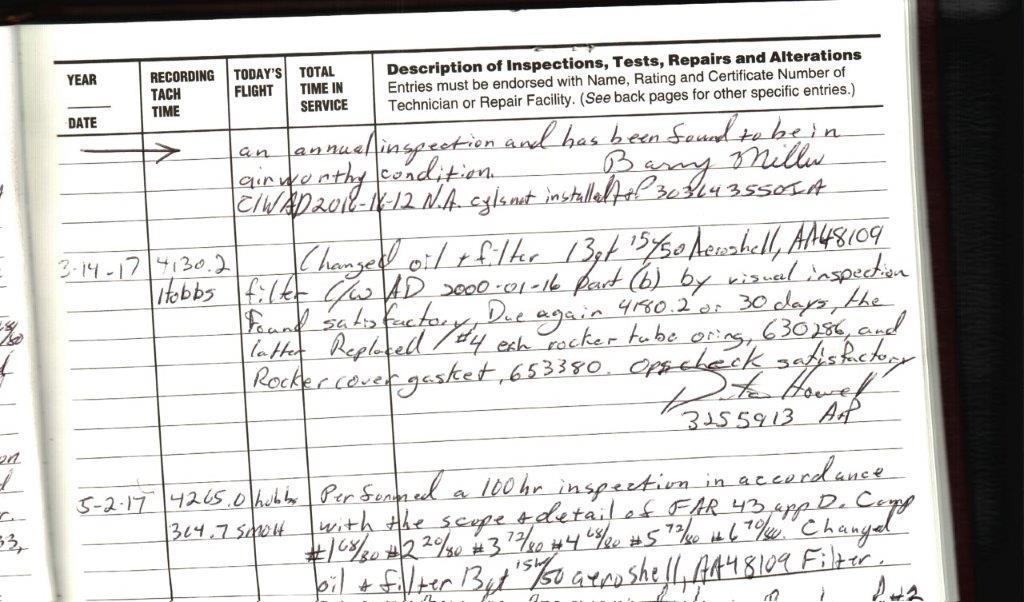 YEAR
DATE
RECORDING
TACH
TIME
TODAY'S
FLIGHT
TOTAL
TIME IN
SERVICE
Description of Inspections, Tests, Repairs and Alterations
Entries must be endorsed with Name, Rating and Certificate Number of
Technician or Repair Facility. (See back pages for other specific entries.)
an annual inspection and has been found to be in
airworthy condition. Barry Miller
C/W AD 2016-16-12 N.A. cyls not installed
3-14-17 4130.2 Changed oil + filter 13qt 15W/50 Aeroshell, AA48109
Hobbs filter C/W AD 2000-01-16 Part (b) by visual inspection
Found satisfactory, Due again 4180.2 or 30 days, the
latter Replaced #4 exh rocker tube oring, 630286, and
Rocker cover gasket, 653380. Ops check satisfactory
Howell
3255913 AP
5-2-17 4265.0 hobbs Performed a 100hr inspection in accordance
364.7 SMOH with the scope + detail of FAR 43 app D. Comp
#1 68/80 #2 20/80 #3 72/80 #4 68/80 #5 72/80 #6 70/80. Changed
oil + filter 13qt 15W/50 aeroshell, AA48109 Filter.